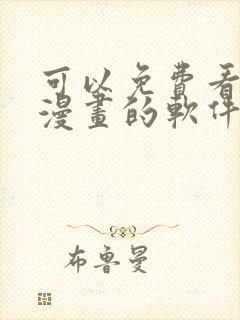 可以免費看
漫畫的軟件
布魯曼